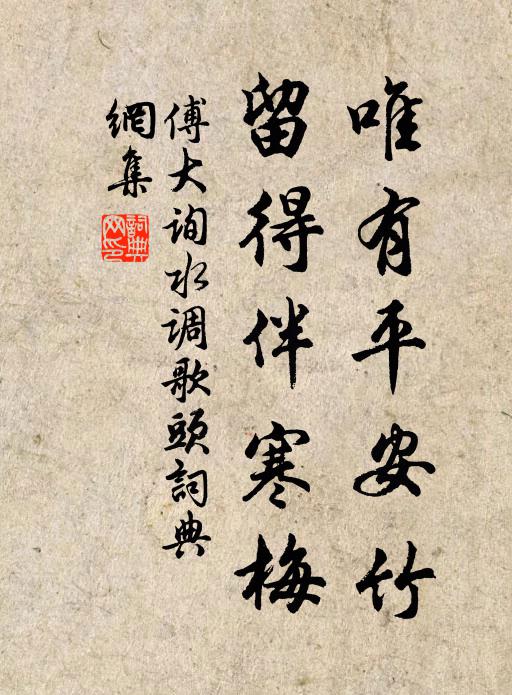 唯有平安竹
留得伴寒梅
傅大询水调歌頭詞典
網集
詞典
网印